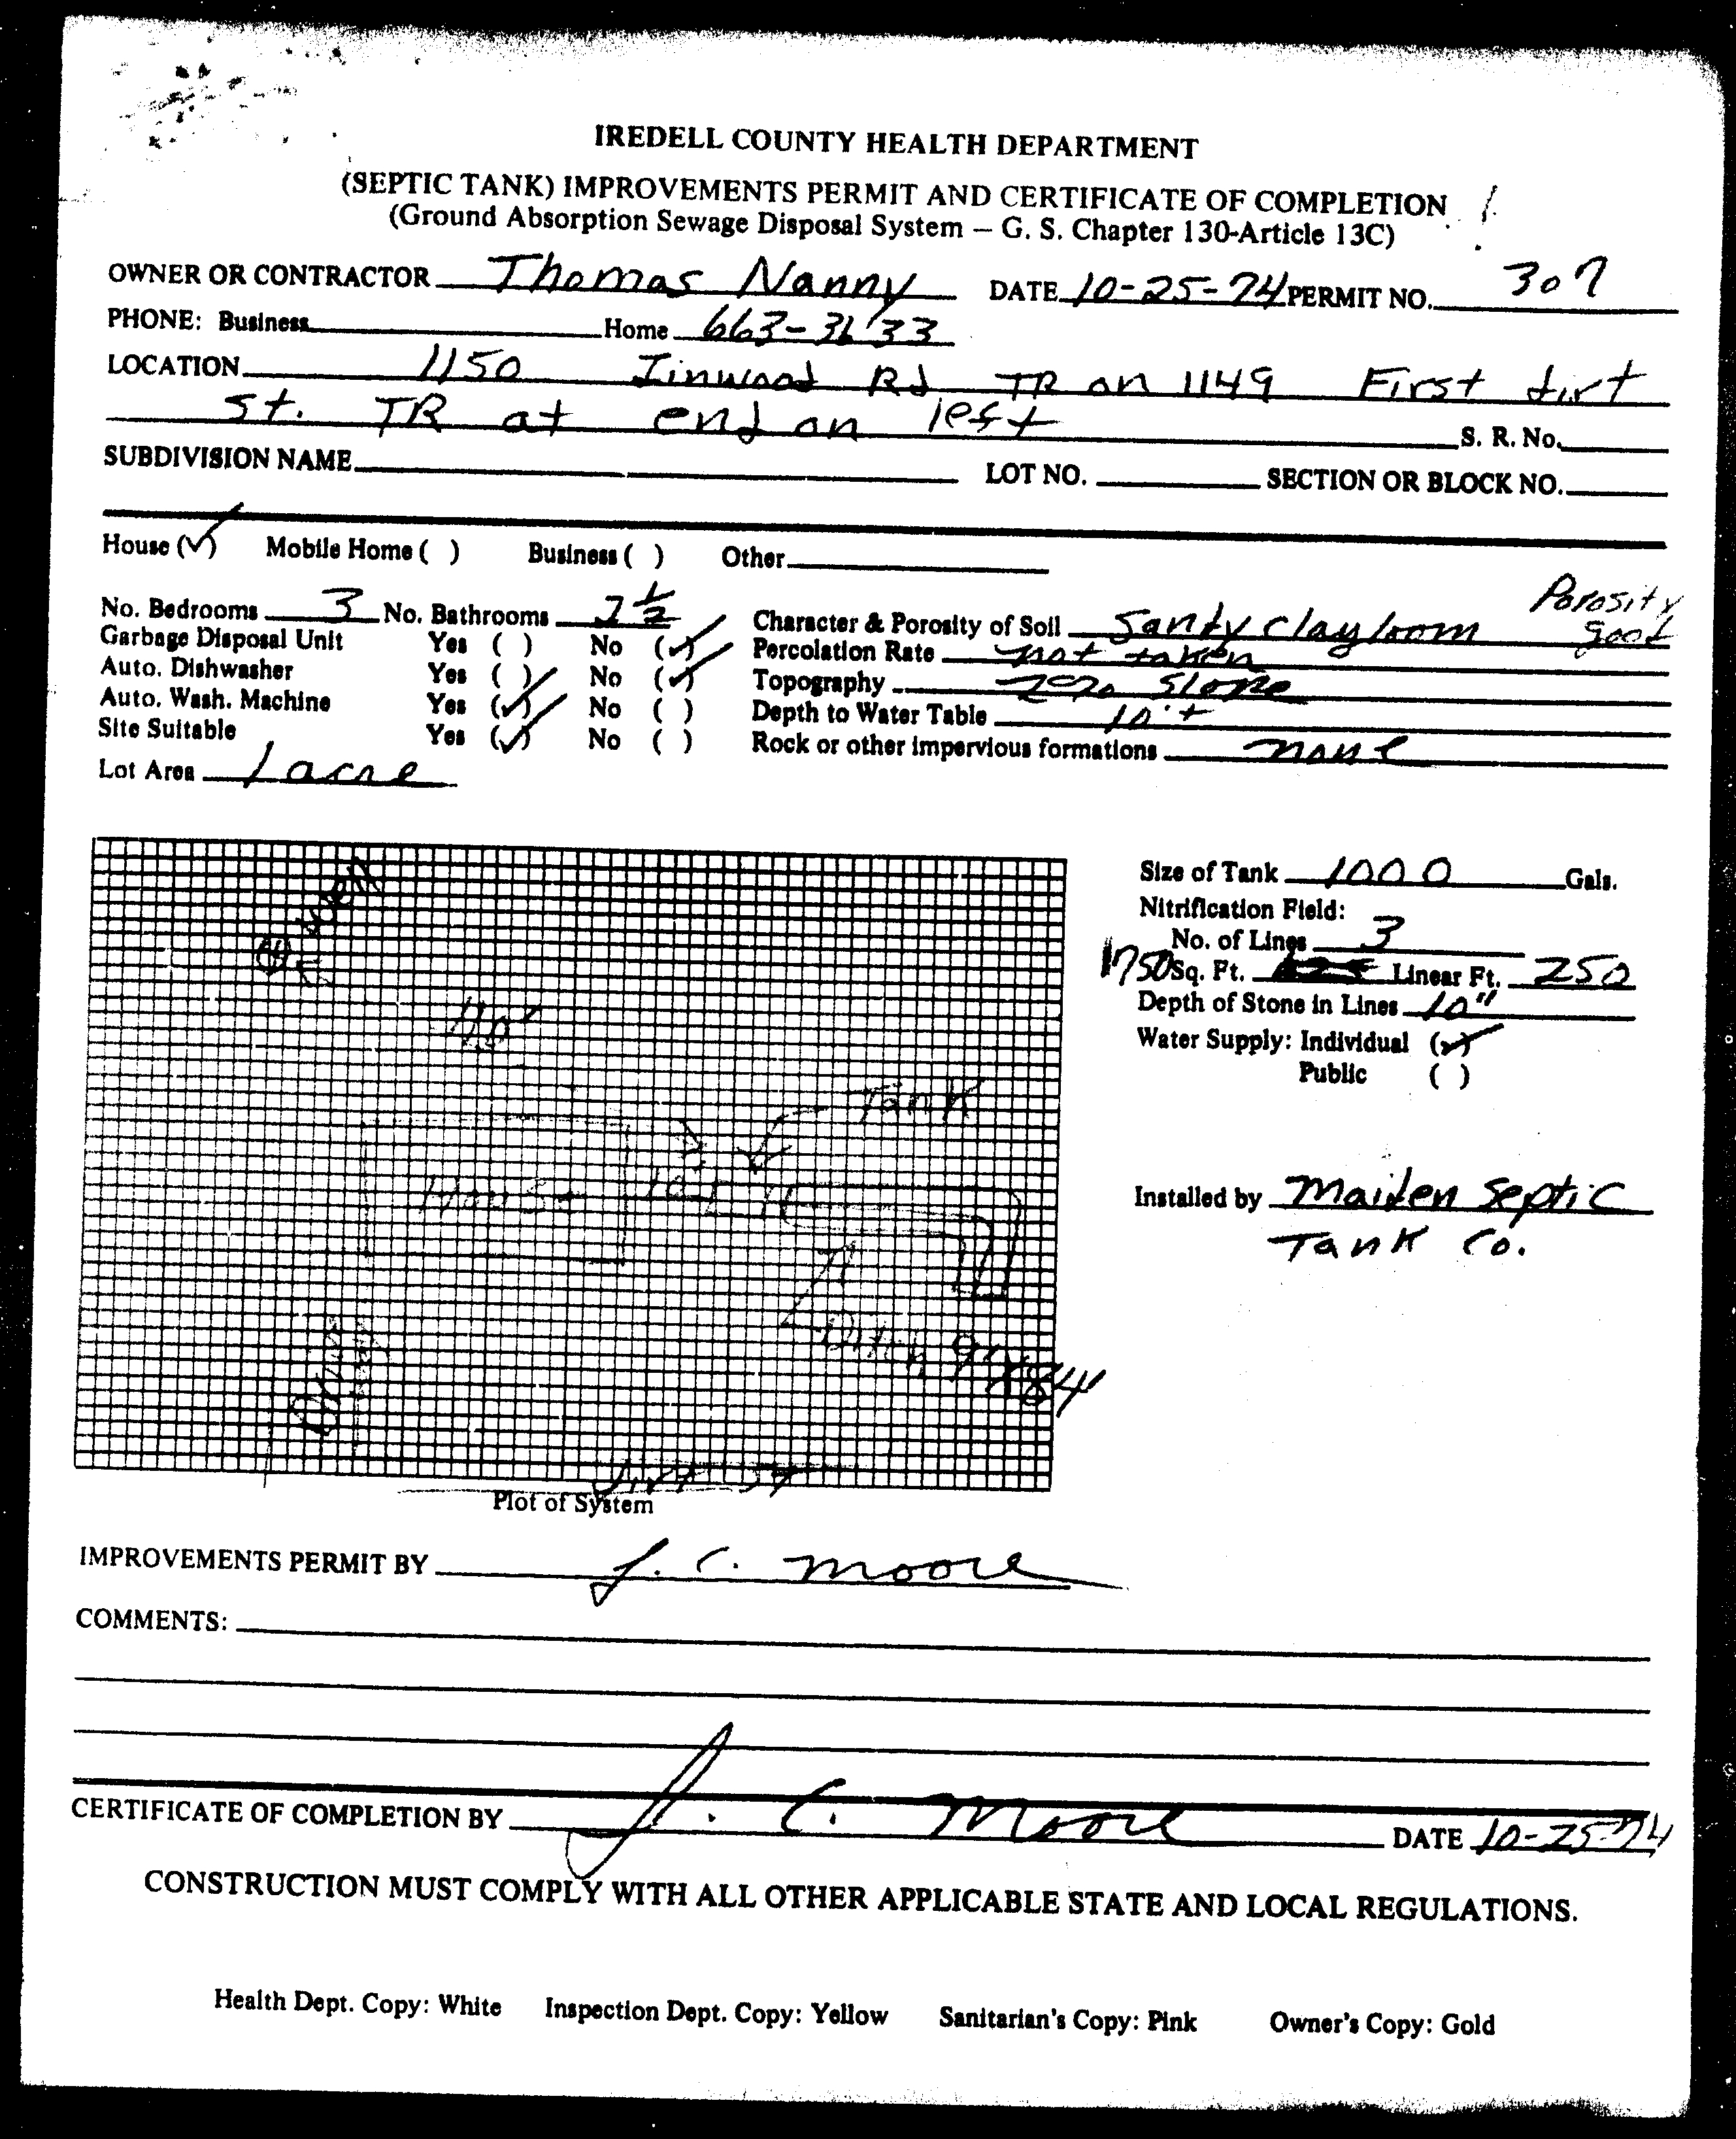 IREDELL COUNTY HEALTH DEPARTMENT
(SEPTIC TANK) IMPROVEMENTS PERMIT AND CERTIFICATE OF COMPLETION
(Ground Absorption Sewage Disposal System – G. S. Chapter 130-Article 13C)
OWNER OR CONTRACTOR Thomas Nanny DATE 10-25-74 PERMIT NO. 307
PHONE: Business Home 663-3633
LOCATION 1150 Linwood Rd TR on 1149 First dirt
st. TR at end on left S. R. No.
SUBDIVISION NAME LOT NO. SECTION OR BLOCK NO.
House (✓) Mobile Home ( ) Business ( ) Other
Porosity
No. Bedrooms 3 No. Bathrooms 2 1/2 Character & Porosity of Soil Sandy clay loom good
Garbage Disposal Unit Yes ( ) No (✓) Percolation Rate not taken
Auto. Dishwasher Yes ( ) No (✓) Topography 2% Slope
Auto. Wash. Machine Yes (✓) No ( ) Depth to Water Table 10'+
Site Suitable Yes (✓) No ( ) Rock or other impervious formations none
Lot Area 1 acre
well
Size of Tank 1000 Gals.
Nitrification Field:
No. of Lines 3
1750 Sq. Ft. Linear Ft. 250
Depth of Stone in Lines 10"
Water Supply: Individual (✓)
Public ( )
Tank
House
Installed by Maiden Septic
Tank Co.
Ditch 84'
Drive
Dirt St
Plot of System
IMPROVEMENTS PERMIT BY J. C. Moore
COMMENTS:
CERTIFICATE OF COMPLETION BY J. C. Moore DATE 10-25-74
CONSTRUCTION MUST COMPLY WITH ALL OTHER APPLICABLE STATE AND LOCAL REGULATIONS.
Health Dept. Copy: White Inspection Dept. Copy: Yellow Sanitarian's Copy: Pink Owner's Copy: Gold